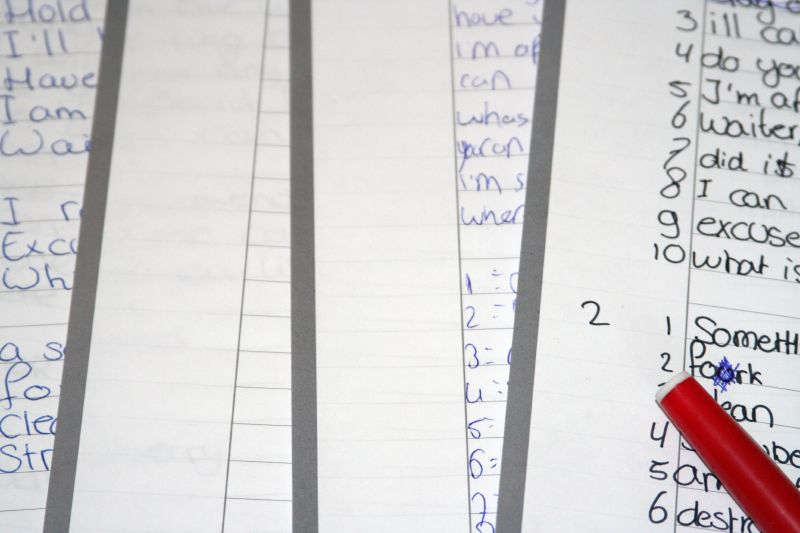 Hold
I'll
Have
I am
Wai
I r
Exc
Wh
a s
fo
Clea
Str
have
i'm of
can
whas
yacan
i'm s
wher
1 =
2 =
3 =
4 =
5 =
6 =
7
3 ill ca
4 do you
5 I'm af
6 waiter,
7 did is
8 I can
9 excuse
10 what is
2
1 Someth
2 fork
lean
4 be
5 an
6 destr